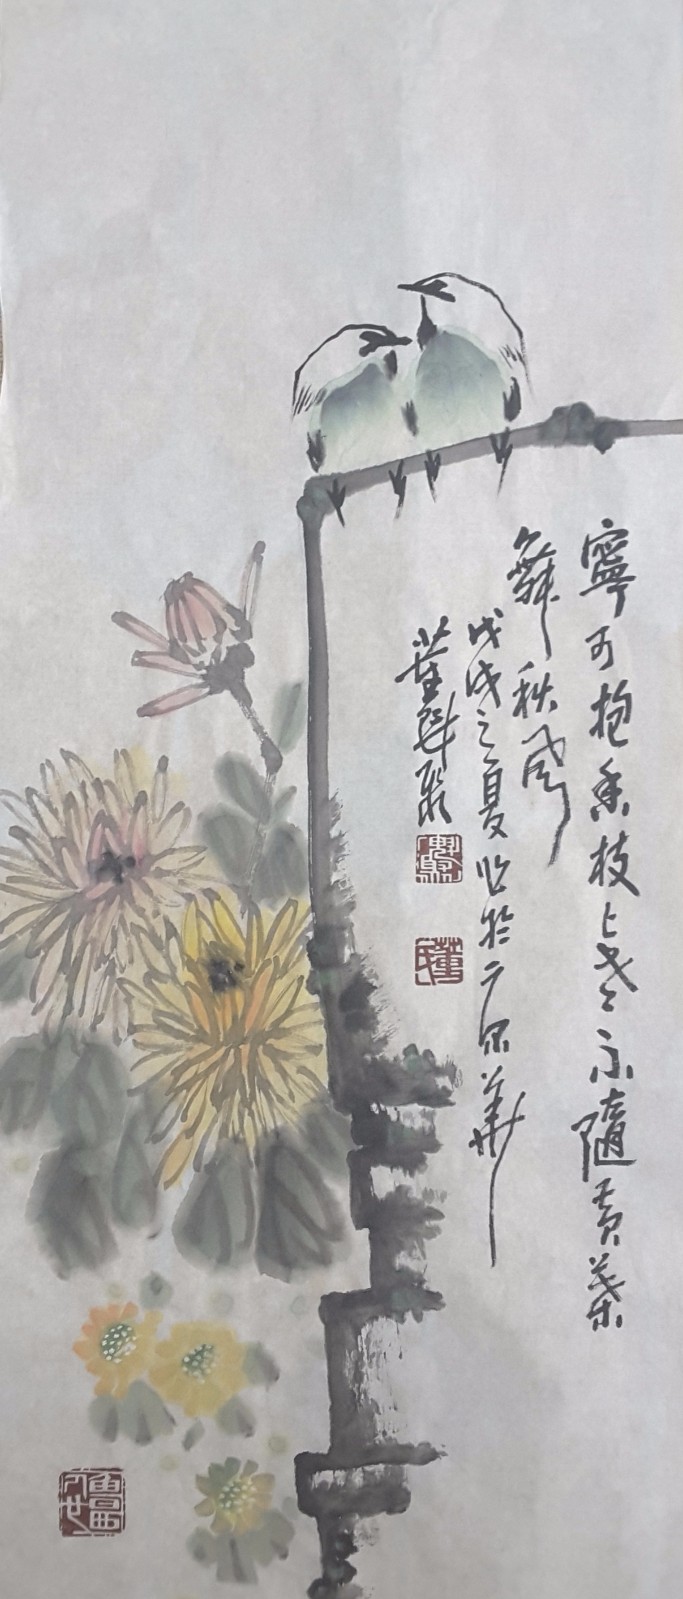 寧可抱香枝上老不隨黃葉
舞秋風
戊戌之夏作於華
董
董氏
魯西